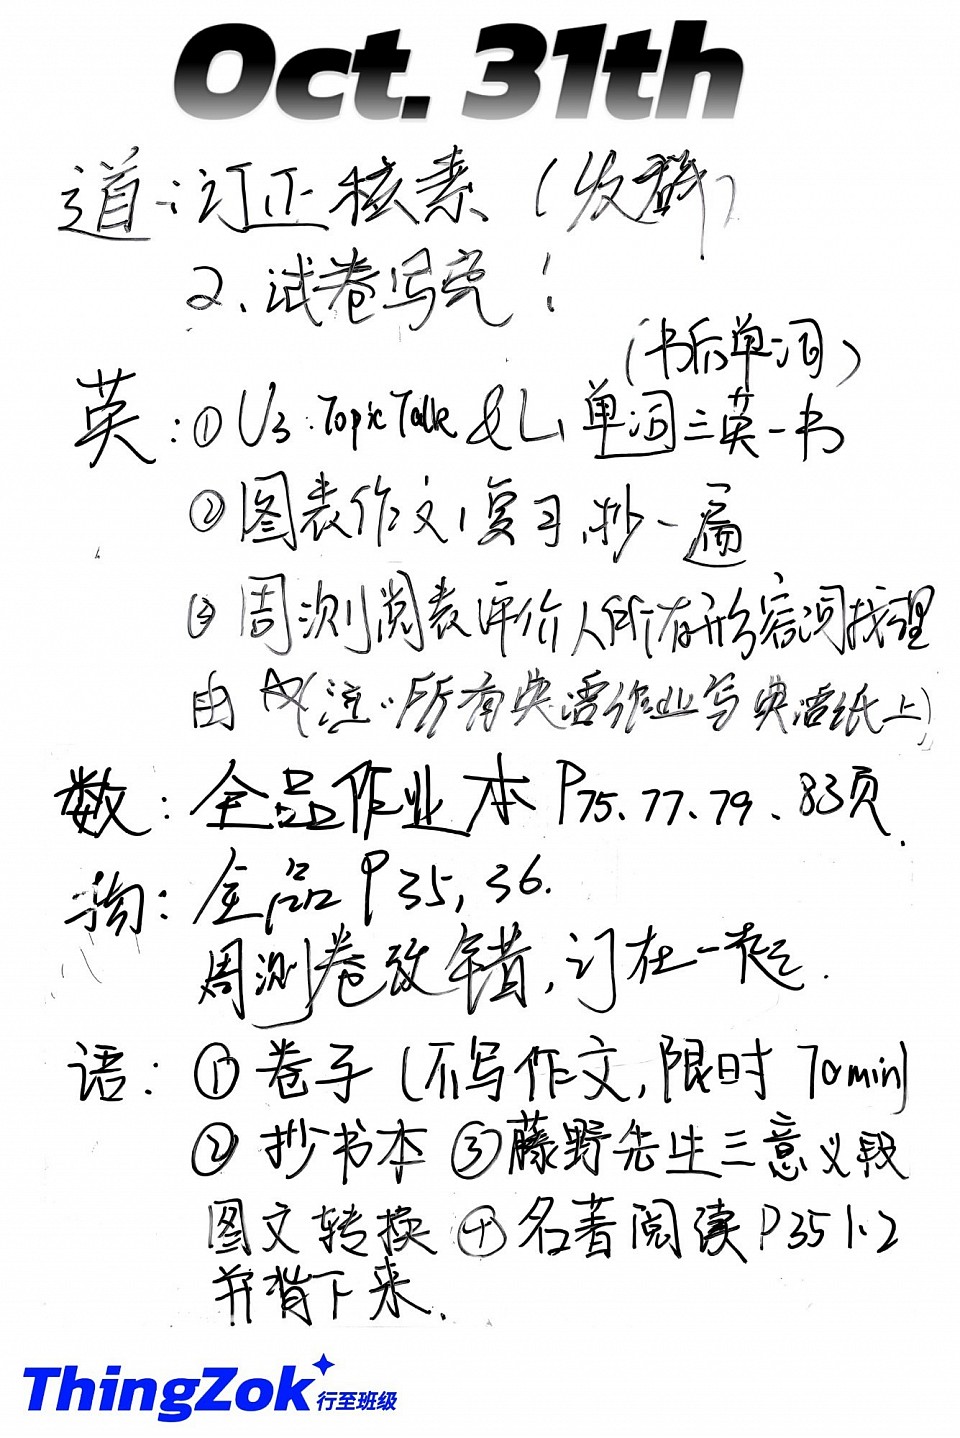 Oct. 31th
道:订正核素（发群）
2、试卷写完！
（书后单词）
英:①U3:Topic Talk & L1 单词三英一书
②图表作文,复习,抄一遍
③周测阅表评价人所有形容词找理
由 (注:所有英语作业写英语纸上)
数:全品作业本 P75、77、79、83页.
物:全品 P35, 36.
周测卷改错, 订在一起.
语:①卷子(不写作文,限时 70min)
②抄书本 ③藤野先生三意义段
图文转换 ④名著阅读 P35 1·2
并背下来.
ThingZok 行至班级